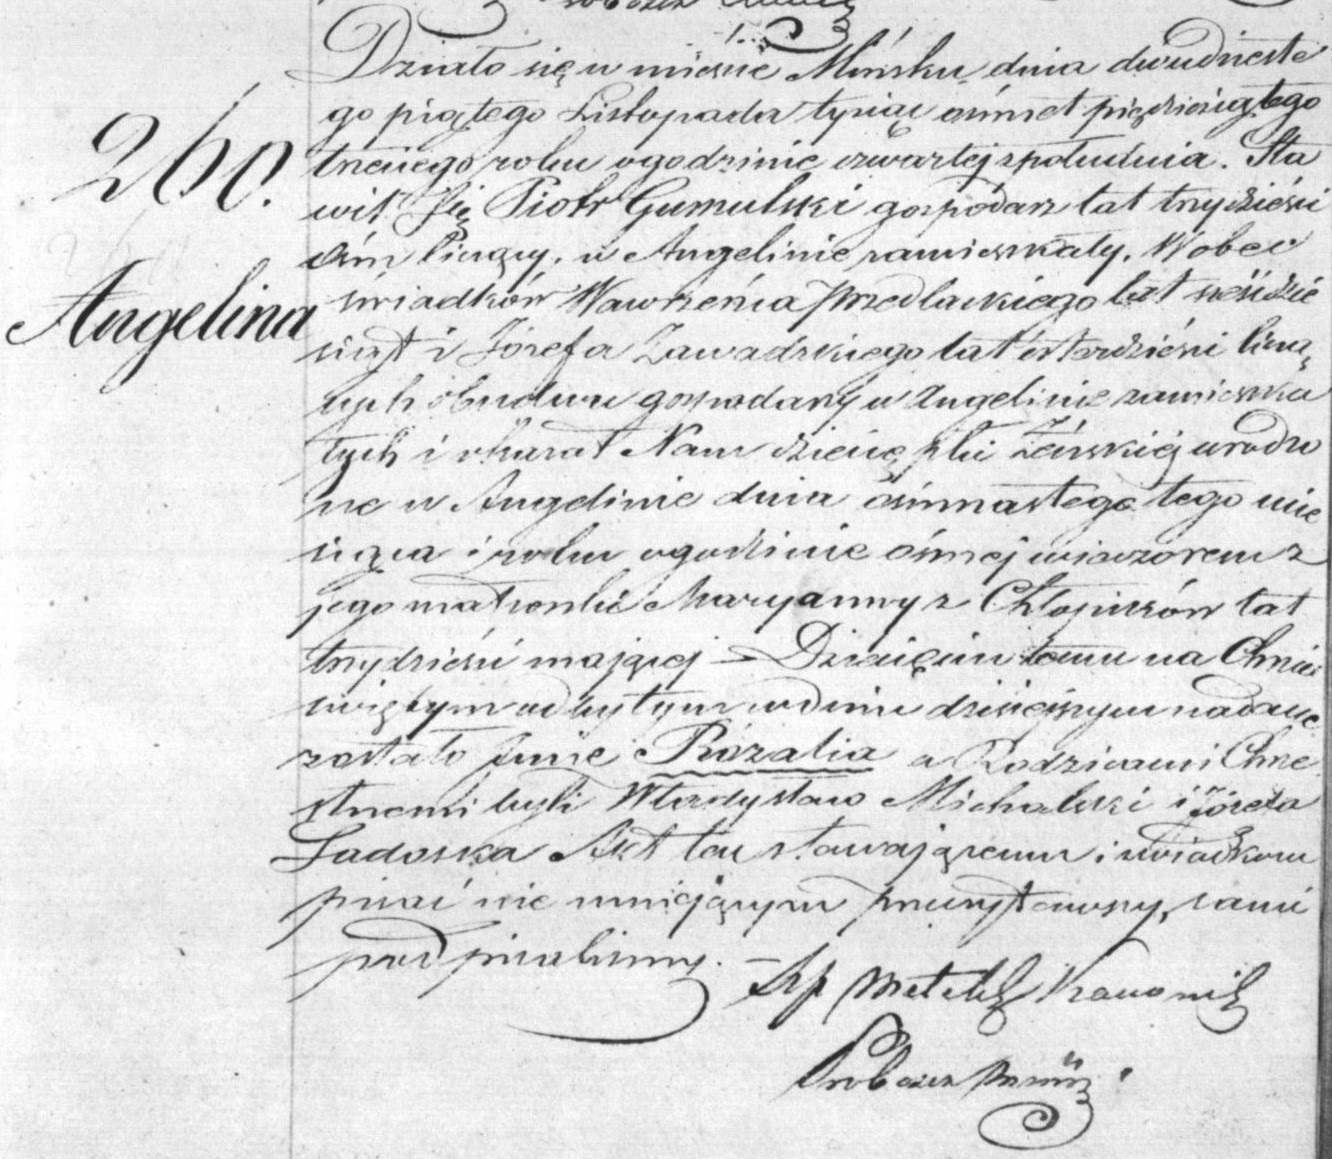 Działo się w mieście Mińsku dnia dwudzieste
go piątego Listopada tysiąc ośmset pięćdziesiątego
trzeciego roku o godzinie czwartej z południa. Sta
260.
wił Się Piotr Gumulski gospodarz lat trzydzieści
ośm liczący, w Angelinie zamieszkały. Wobec
Angelina
świadków Wawrzeńca lat sześćdzie
siąt i Józefa Zawadzkiego lat czterdzieści liczą
cych obudwu gospodarzy w Angelinie zamieszka
łych i okazał Nam dziecię płci Żeńskiej urodzo
ne w Angelinie dnia ośmnastego tego mie
siąca i roku o godzinie ósmej wieczorem z
jego małżonki Maryanny z Chłopików lat
trzydzieści mającej – Dziecięciu temu na Chrzcie
świętym odbytym w dniu dzisiejszym nadane
zostało Imie Rozalia a Rodzicami Chrze
stnemi byli Władysław Michalski i Józefa
Sadoska Akt ten stawającemu i świadkom
pisać nie umiejącym przeczytawszy, sami
podpisaliśmy. –
Kanonik
Proboszcz